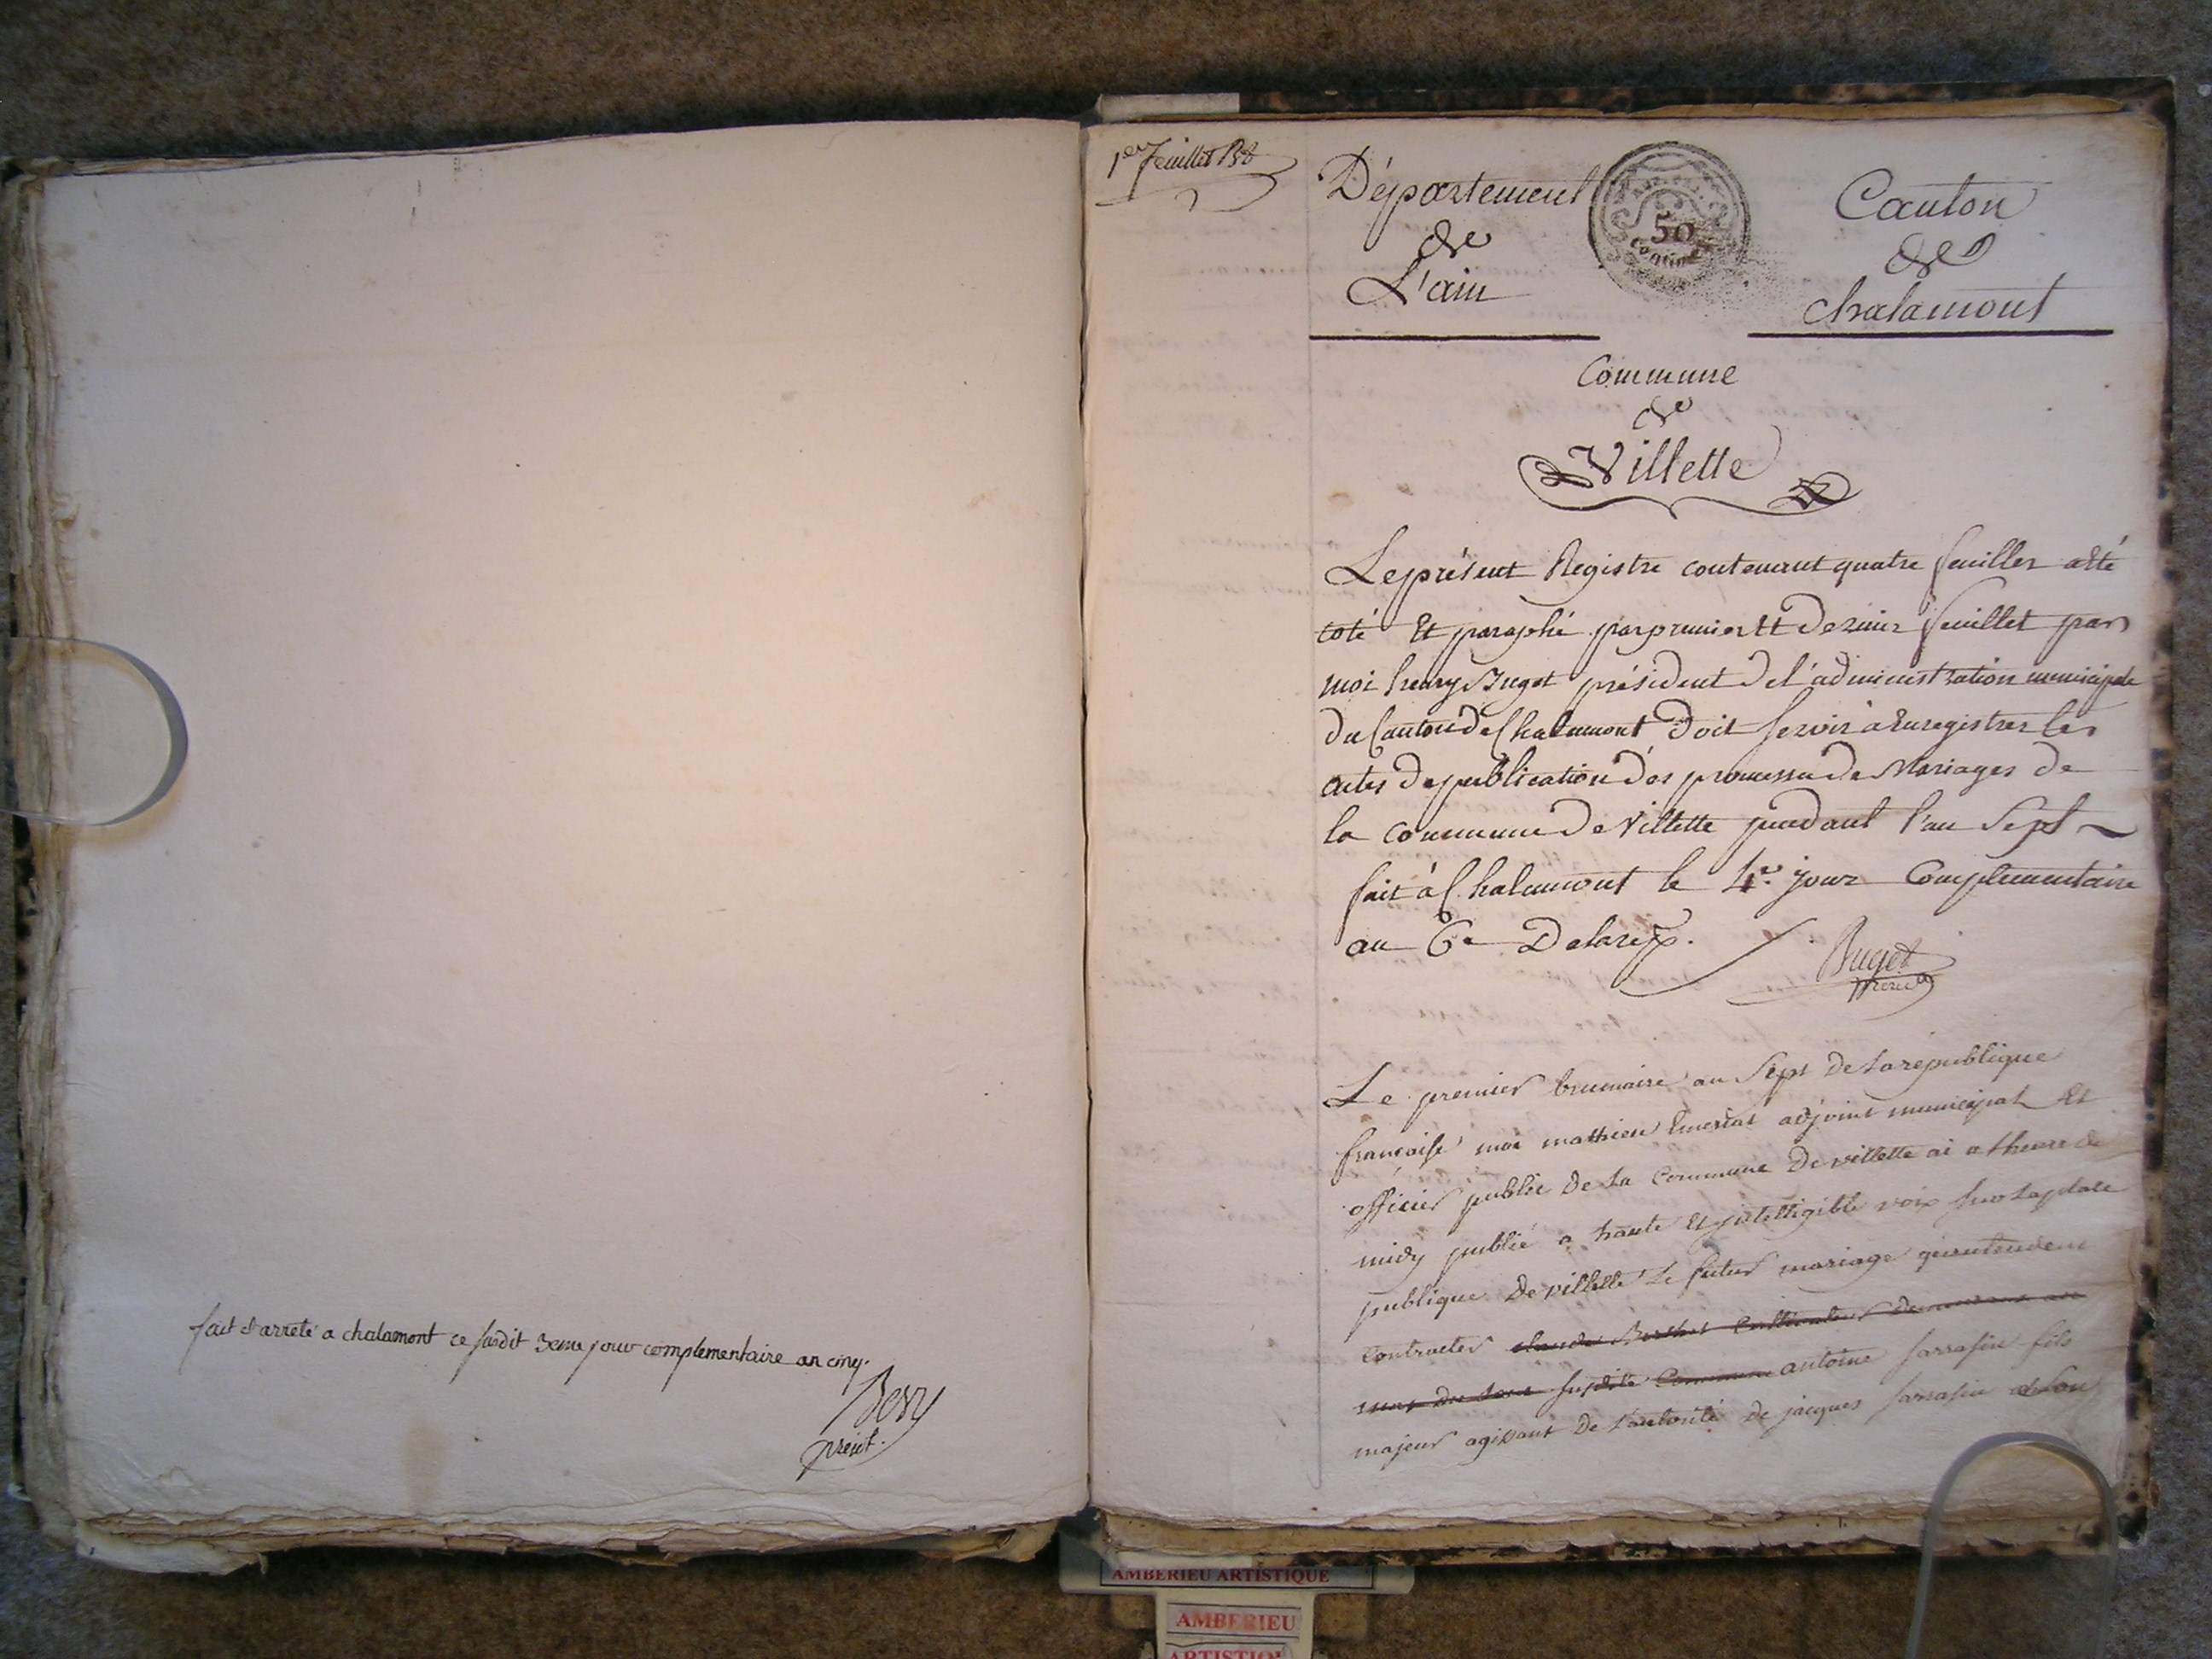 fait et arreté a chalamont ce susdit 3eme jour complementaire an cinq.
Bery
présidt.
1er feuillet
Département
de
L'ain
50
Centimes
Canton
de
chalamont
Commune
de
Villette
Le présent Registre contenant quatre feuilles a Eté
coté Et paraphé par premier Et Dernier feuillet par
moi henry Buget président De l'administration municipale
Du Canton De Chalamont Doit servir à Enregistrer les
actes De publication Des promesses De Mariages De
la commune De Villette pendant l'an Sept
fait à Chalamont le 4e. jour Complementaire
an 6e De la rep.
Buget
présidt
Le premier brumaire an Sept De La republique
françoise moi mathieu adjoint municipal Et
officier public De La Commune De villette ai a Lheure de
midy publié a haute Et jntelligible voix sur La place
publique De villette Le futur mariage qu'entendent
contracter claude Berthet Cultivateur
susdite Commune antoine sarrasin fils
majeur agissant De L'autorité De jacques sarrasin
AMBERIEU ARTISTIQUE
AMBERIEU
ARTISTIQ